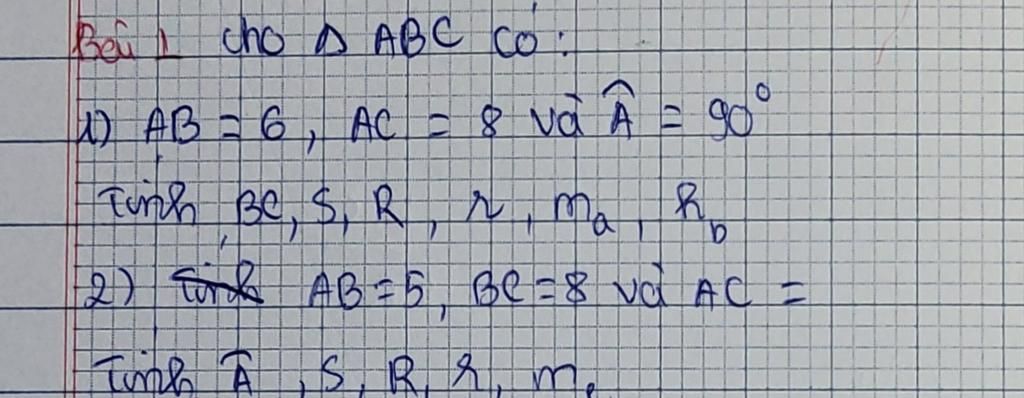 Bài 1 cho Δ ABC có:
1) AB = 6, AC = 8 và Â = 90°
Tính BC, S, R, r, mₐ, h_b
2) AB = 5, BC = 8 và AC =
Tính Â, S, R, r, m